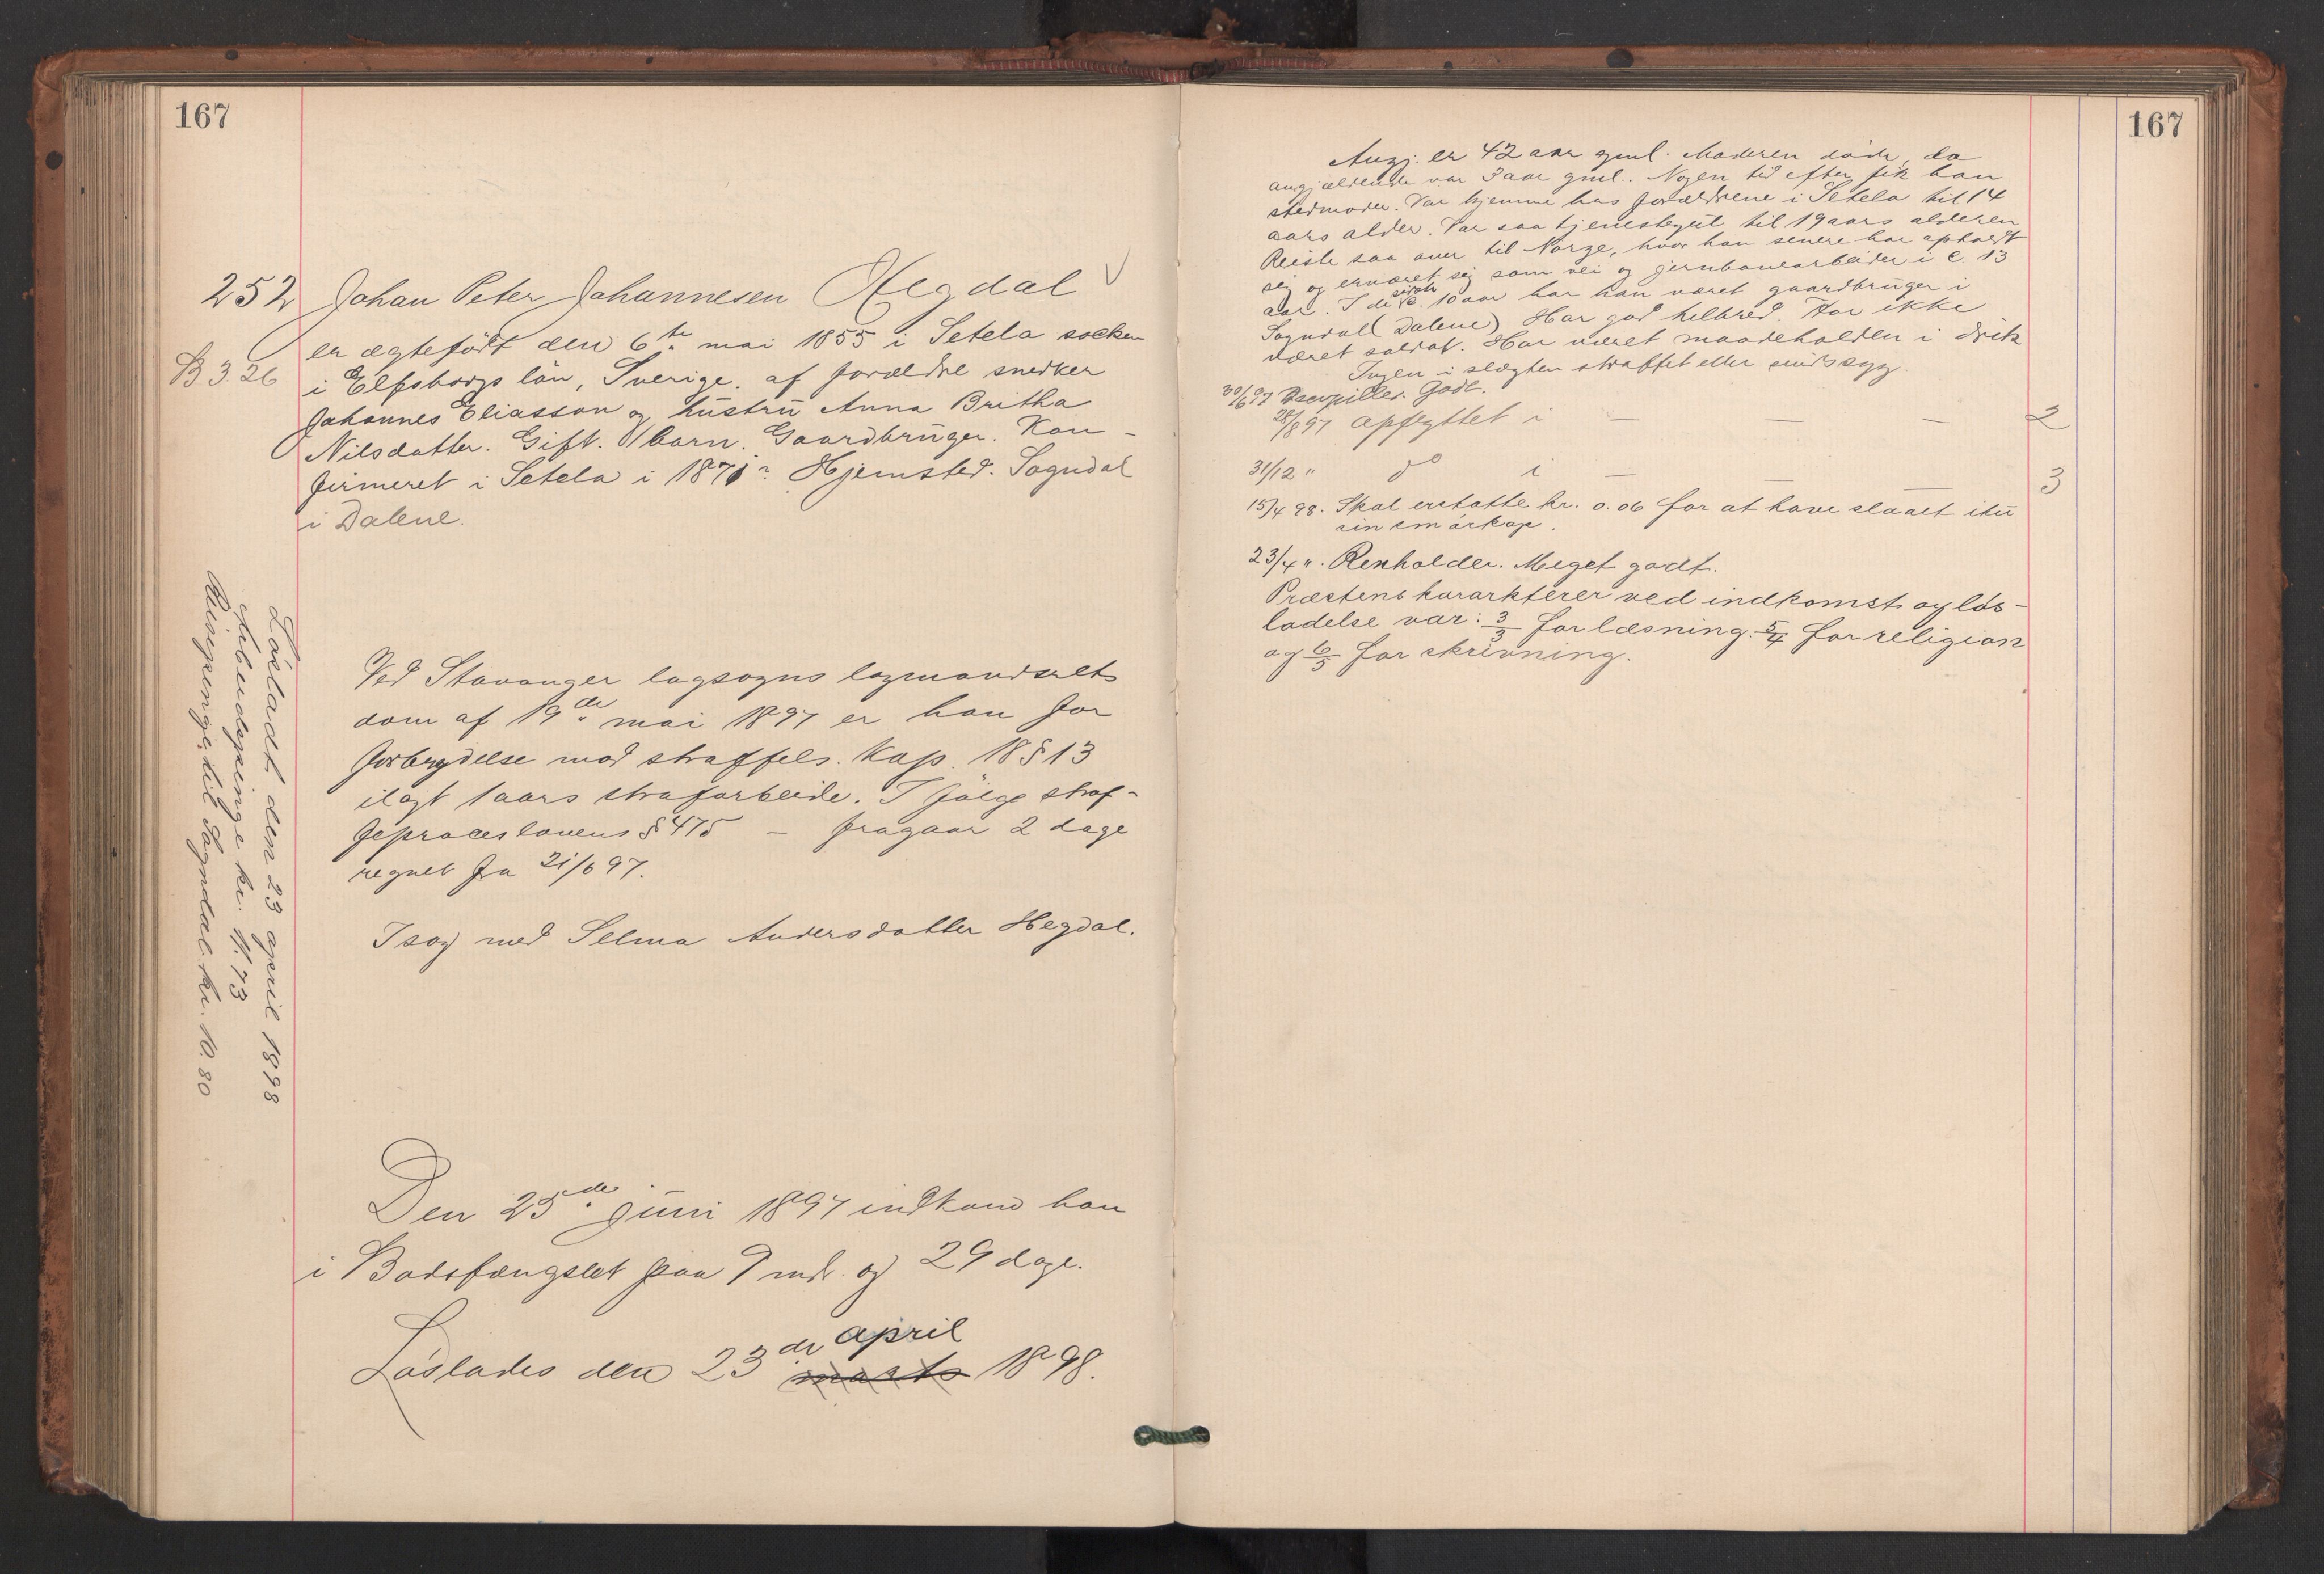 167
252 Johan Peter Johannesen Hegdal
er ægtefødt den 6te mai 1855 i Setela socken
B 3.26 i Elfsborgs län, Sverige. af forældre snedker
Johannes Eliasson og hustrū Anna Britha
Nilsdatter. Gift. barn. Gaardbrūger. Kon-
firmeret i Setela i 1871. Hjemsted. Sogndal
i Dalene.
Ved Stavanger lagsogns lagmandsrets
dom af 19de mai 1897 er han for
forbrydelse mod straffels. Kap. 18 § 13
ilagt 1 aars strafarbeide. I følge straf-
feproceslovens § 475 – fragaar 2 dage
regnet fra 21/6 97.
I sag med Selma Andersdatter Hegdal.
Den 25de jūni 1897 indkom han
i Bodsfængslet paa 9 mdr. og 29 dage.
Løslades den 23de marts april 1898.
Løsladt den 23 april 1898
Arbeidspenge kr. 11.73
Reisepenge til Sogndal kr. 10.80
167
Angj. er 42 aar gml. Moderen døde, da
angjældende var 3 aar gml. Nogen tid efter fik han
stedmoder. Var hjemme hos forældrene i Setela til 14
aars alder. Var saa tjenestegut til 19 aars alderen
Reiste saa over til Norge, hvor han senere har opholdt
sig og ernæret sig som vei og jernbanearbeider i c. 13
aar. I de sidste c. 10 aar har han været gaardbrūger i
Sogndal (Dalene) Har god helbred. Har ikke
været soldat. Har været maadeholden i drik
Ingen i slægten straffet eller sindssyg
30/6 97 Godt.
28/8 97 opflyttet i — — — 2
31/12 " do i — — — 3
15/4 98. Skal erstatte kr. 0.06 for at have slaaet itū
sin smørkop.
23/4 ". Renholder. Meget godt.
Præstens kararkterer ved indkomst og løs-
ladelse var: 3/3 for læsning. 5/4 for religion
og 6/5 for skrivning.